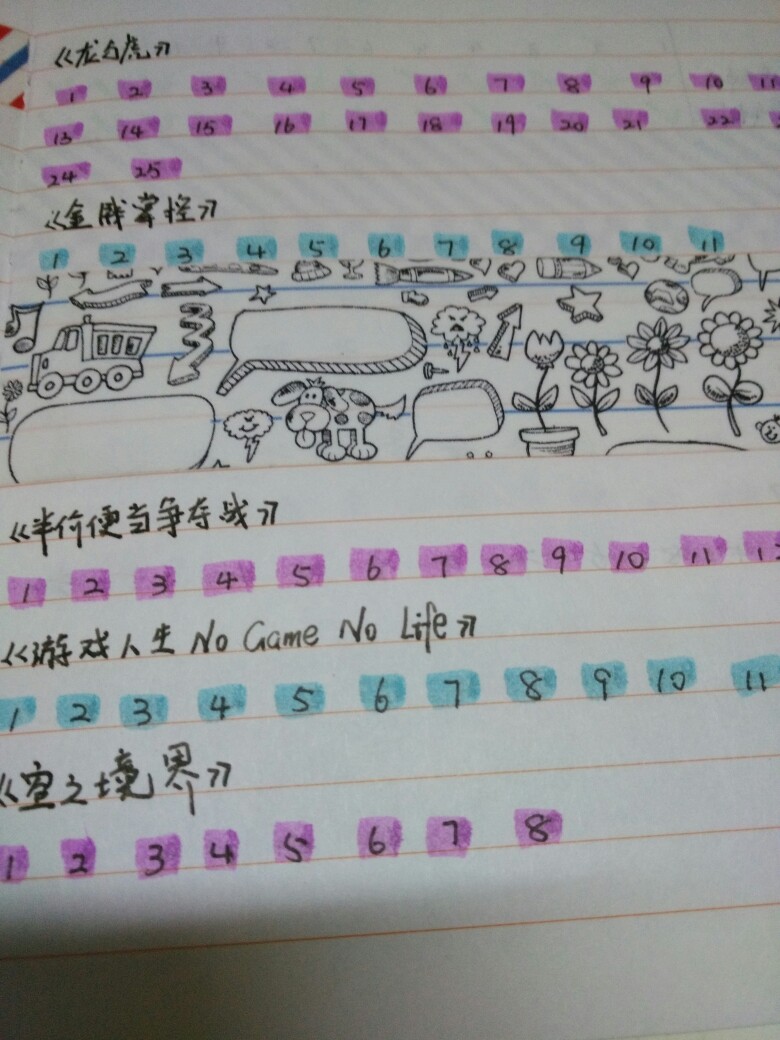 《龙与虎》
1 2 3 4 5 6 7 8 9 10 11
13 14 15 16 17 18 19 20 21 22
24 25
《金钱掌控》
1 2 3 4 5 6 7 8 9 10 11
《半价便当争夺战》
1 2 3 4 5 6 7 8 9 10 11 12
《游戏人生 No Game No Life》
1 2 3 4 5 6 7 8 9 10 11
《空之境界》
1 2 3 4 5 6 7 8